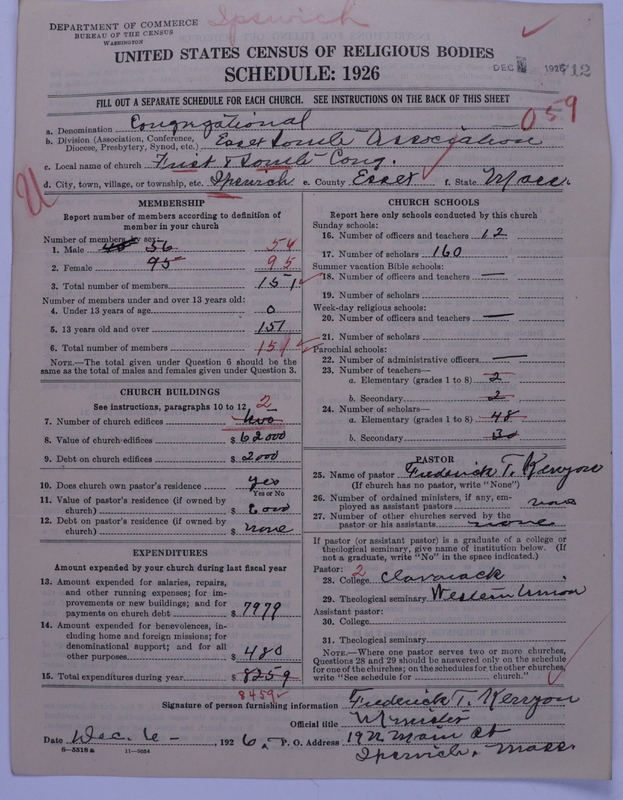 Ipswich
DEPARTMENT OF COMMERCE
BUREAU OF THE CENSUS
WASHINGTON
UNITED STATES CENSUS OF RELIGIOUS BODIES
SCHEDULE: 1926
DEC 1926 712
FILL OUT A SEPARATE SCHEDULE FOR EACH CHURCH. SEE INSTRUCTIONS ON THE BACK OF THIS SHEET
059
a. Denomination Congregational
b. Division (Association, Conference, Diocese, Presbytery, Synod, etc.) Essex South Association
c. Local name of church First & South Cong.
d. City, town, village, or township, etc. Ipswich e. County Essex f. State Mass.
U
MEMBERSHIP
Report number of members according to definition of member in your church
Number of members by sex:
1. Male 56 56
2. Female 95 95
3. Total number of members 151
Number of members under and over 13 years old:
4. Under 13 years of age 0
5. 13 years old and over 151
6. Total number of members 151
NOTE.—The total given under Question 6 should be the same as the total of males and females given under Question 3.
CHURCH BUILDINGS
See instructions, paragraphs 10 to 12
7. Number of church edifices two 2
8. Value of church edifices $ 62000
9. Debt on church edifices $ 2000
10. Does church own pastor's residence yes
Yes or No
11. Value of pastor's residence (if owned by church) $
12. Debt on pastor's residence (if owned by church) $ none
EXPENDITURES
Amount expended by your church during last fiscal year
13. Amount expended for salaries, repairs, and other running expenses; for improvements or new buildings; and for payments on church debt $ 7979
14. Amount expended for benevolences, including home and foreign missions; for denominational support; and for all other purposes $ 480
15. Total expenditures during year $ 8259
8459
CHURCH SCHOOLS
Report here only schools conducted by this church
Sunday schools:
16. Number of officers and teachers 12
17. Number of scholars 160
Summer vacation Bible schools:
18. Number of officers and teachers —
19. Number of scholars
Week-day religious schools:
20. Number of officers and teachers —
21. Number of scholars
Parochial schools:
22. Number of administrative officers —
23. Number of teachers—
a. Elementary (grades 1 to 8) 2
b. Secondary 2
24. Number of scholars—
a. Elementary (grades 1 to 8) 48
b. Secondary 30
PASTOR
25. Name of pastor Frederick T. Kenyon
(If church has no pastor, write "None")
26. Number of ordained ministers, if any, employed as assistant pastors none
27. Number of other churches served by the pastor or his assistants none
If pastor (or assistant pastor) is a graduate of a college or theological seminary, give name of institution below. (If not a graduate, write "No" in the space indicated.)
Pastor: 2
28. College Claverack
29. Theological seminary Western Union
Assistant pastor:
30. College
31. Theological seminary
NOTE.—Where one pastor serves two or more churches, Questions 28 and 29 should be answered only on the schedule for one of the churches; on the schedules for the other churches, write "See schedule for church."
Signature of person furnishing information Frederick T. Kenyon
Official title Minister
Date Dec. 6 —, 1926. P. O. Address Main St
Ipswich, Mass.
8—5518a 11—8654